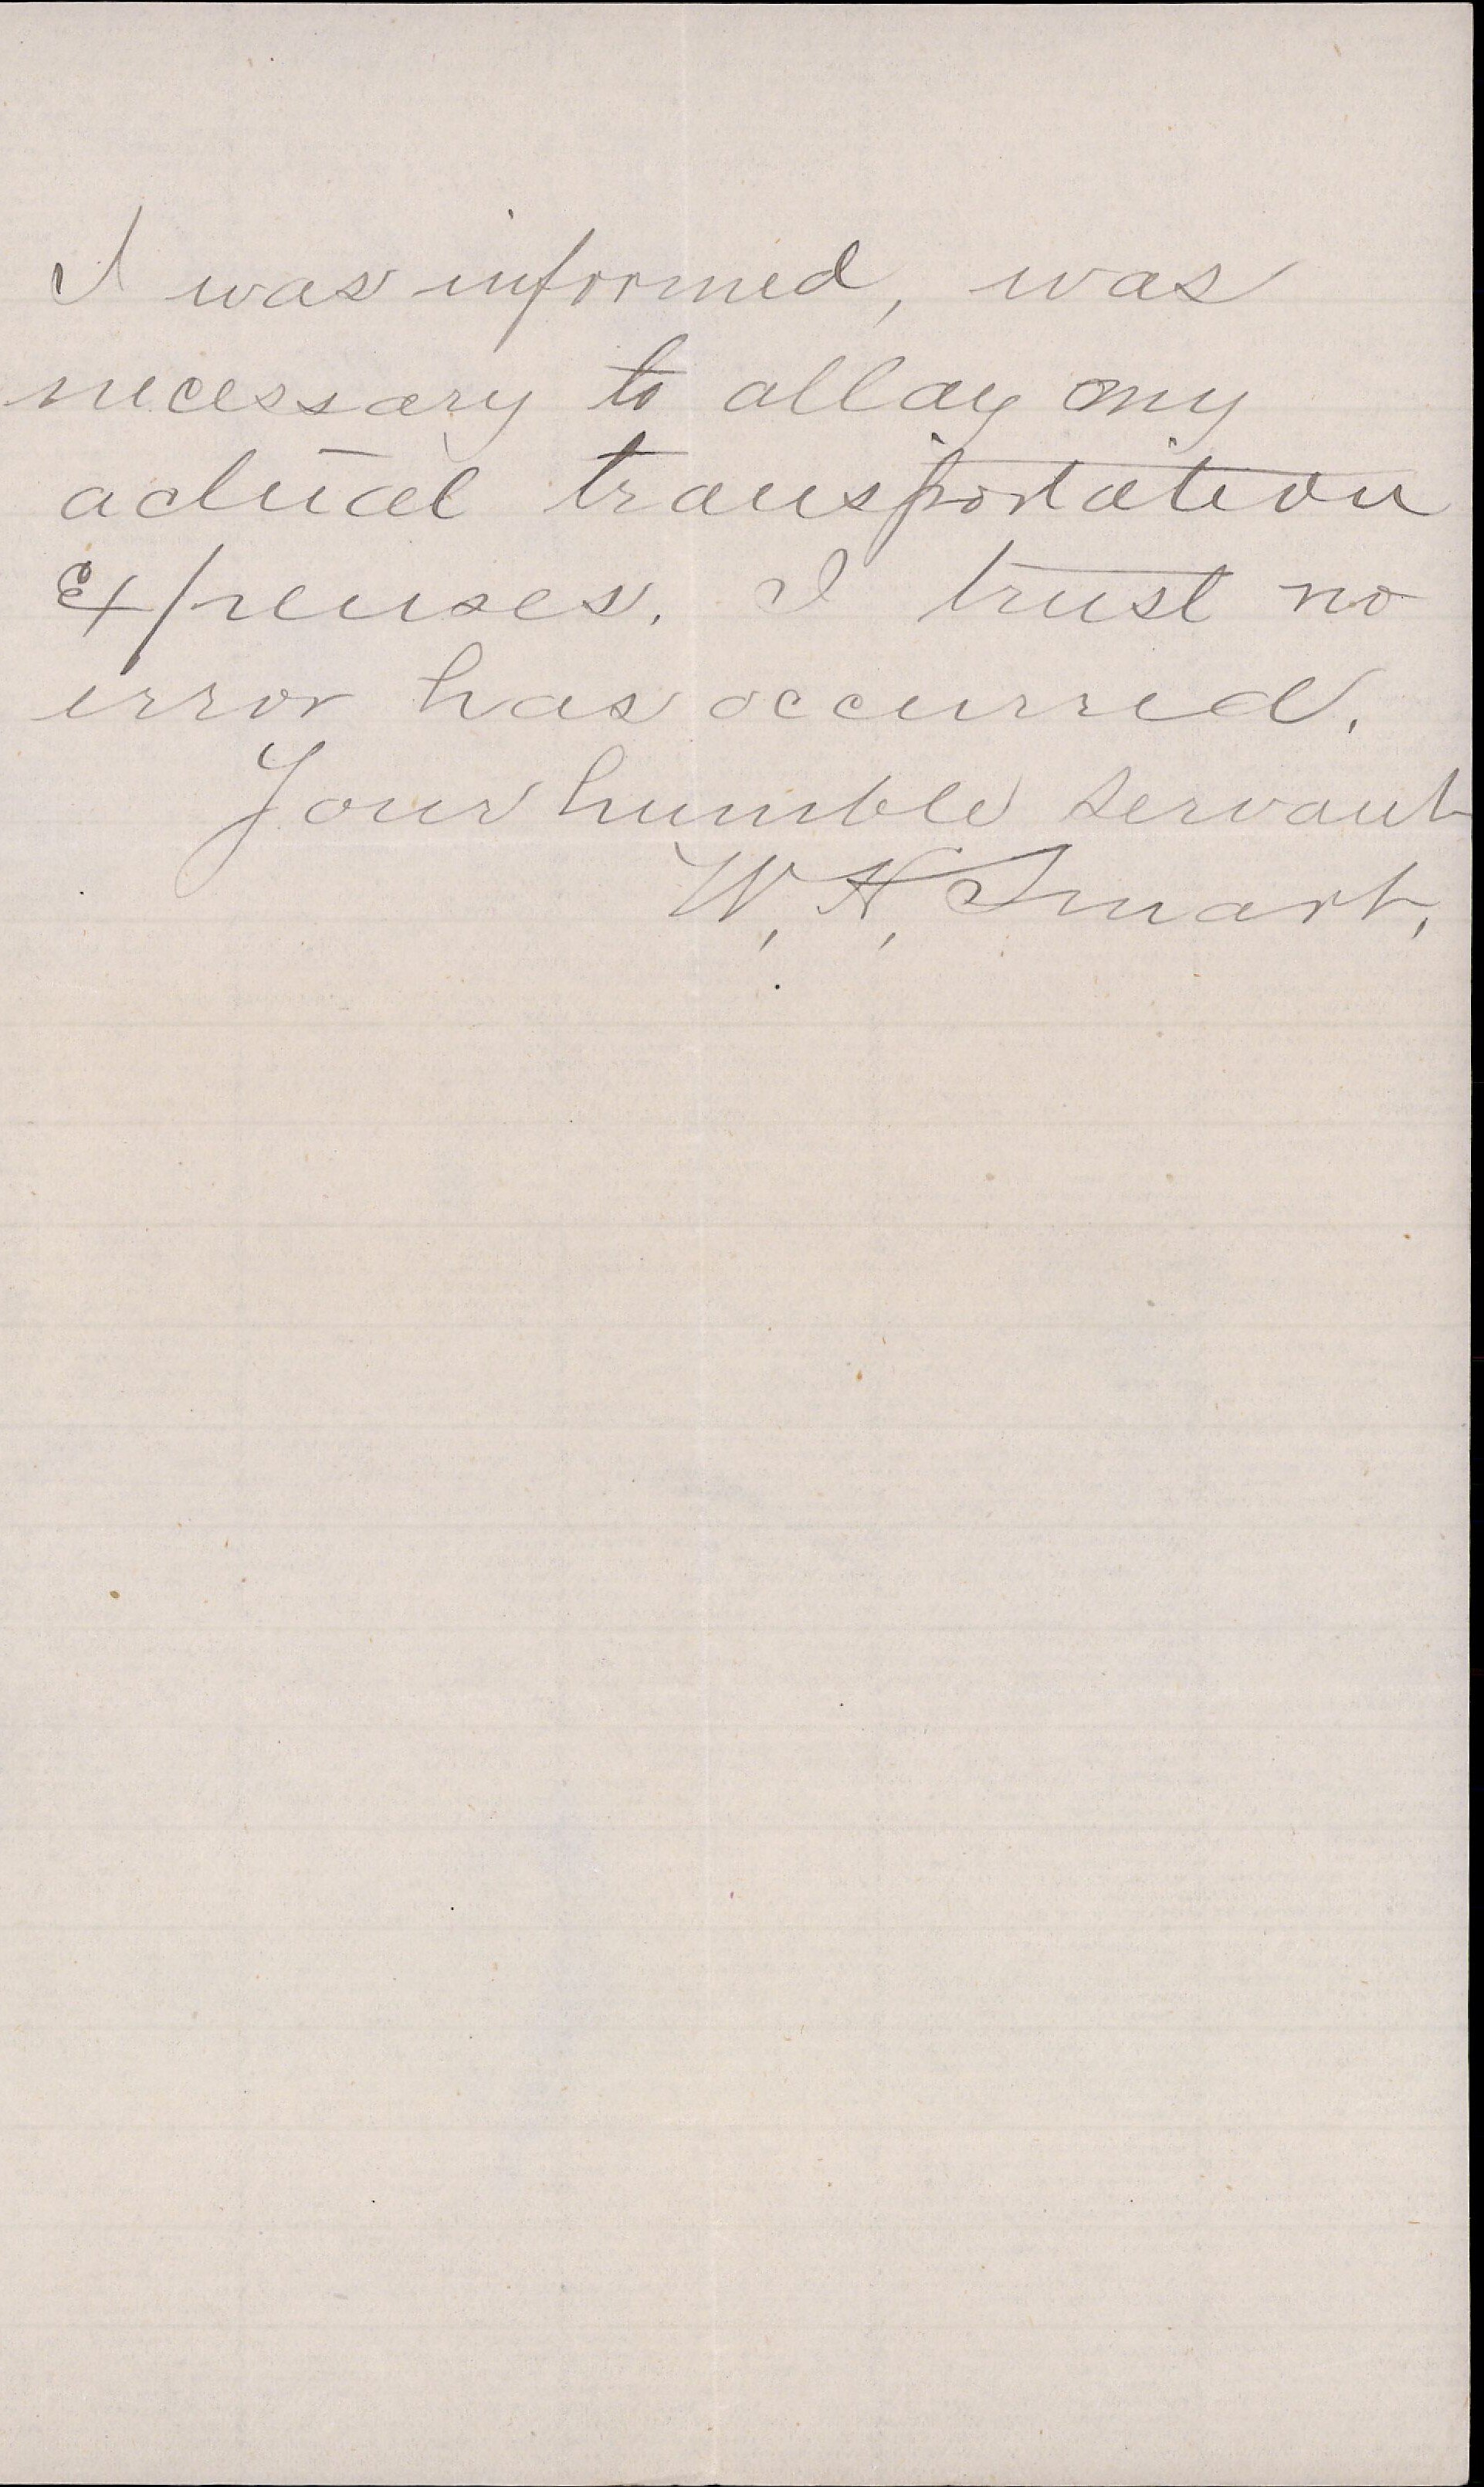 I was informed, was
necessary to allay my
actual transportation
expenses. I trust no
error has occurred.
Your humble servant
W. H. Smart.